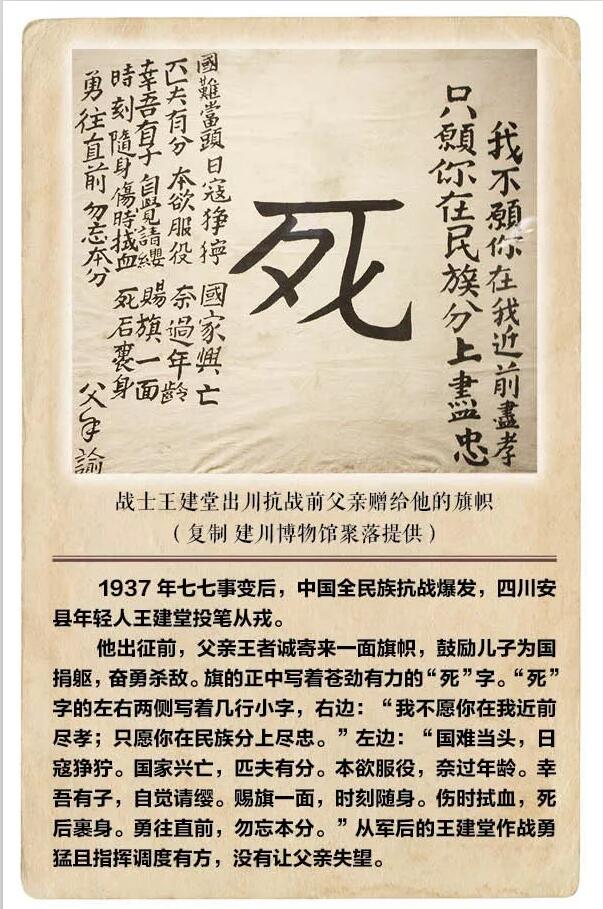 我不願你在我近前盡孝
只願你在民族分上盡忠
死
國難當頭 日寇猙獰 國家興亡
匹夫有分 本欲服役 奈過年齡
幸吾有子 自覺請纓 賜旗一面
時刻隨身 傷時拭血 死后裹身
勇往直前 勿忘本分
父手諭
战士王建堂出川抗战前父亲赠给他的旗帜
（复制 建川博物馆聚落提供）
1937 年七七事变后，中国全民族抗战爆发，四川安
县年轻人王建堂投笔从戎。
他出征前，父亲王者诚寄来一面旗帜，鼓励儿子为国
捐躯，奋勇杀敌。旗的正中写着苍劲有力的“死”字。“死”
字的左右两侧写着几行小字，右边：“我不愿你在我近前
尽孝；只愿你在民族分上尽忠。”左边：“国难当头，日
寇狰狞。国家兴亡，匹夫有分。本欲服役，奈过年龄。幸
吾有子，自觉请缨。赐旗一面，时刻随身。伤时拭血，死
后裹身。勇往直前，勿忘本分。”从军后的王建堂作战勇
猛且指挥调度有方，没有让父亲失望。